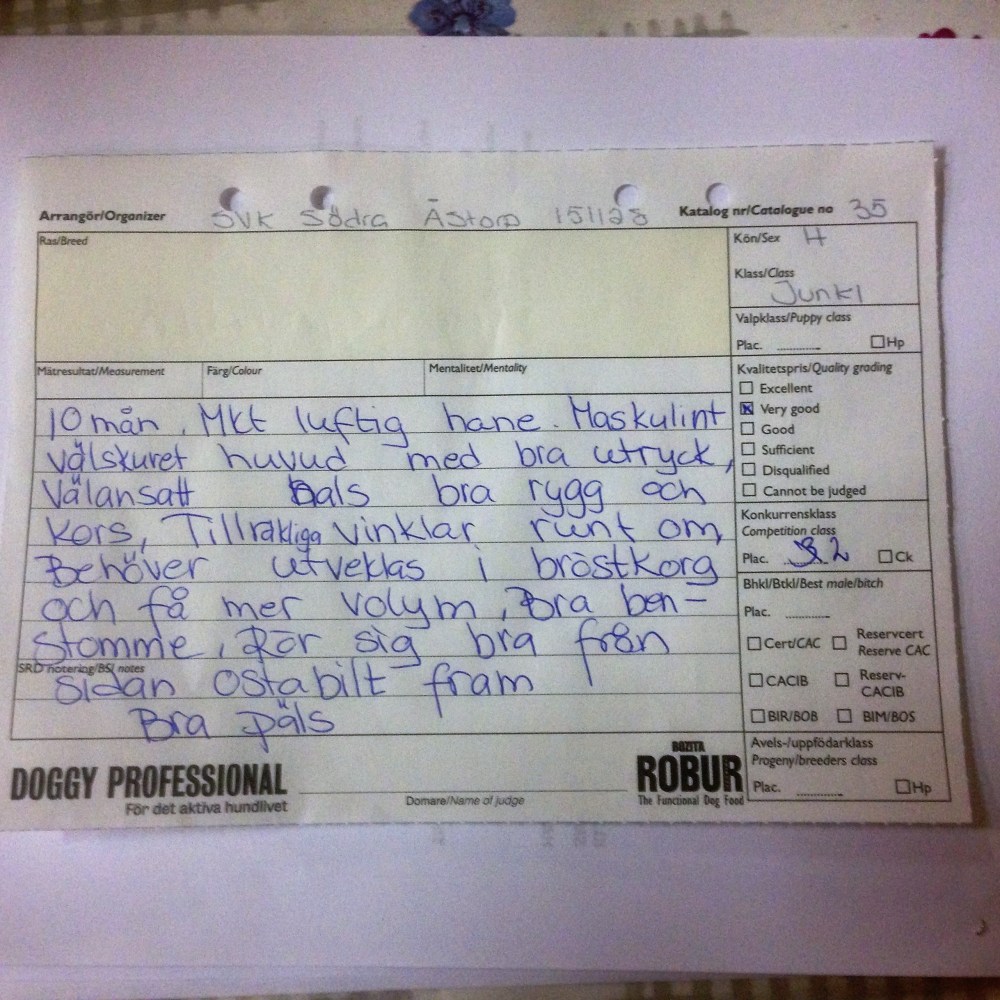 Arrangör/Organizer SVK Södra Åstorp 151128 Katalog nr/Catalogue no 35
Ras/Breed
Kön/Sex H
Klass/Class
Junkl
Valpklass/Puppy class
Plac. Hp
Mätresultat/Measurement Färg/Colour Mentalitet/Mentality
Kvalitetspris/Quality grading
Excellent
Very good
Good
Sufficient
Disqualified
Cannot be judged
10 mån, Mkt luftig hane. Maskulint
välskuret huvud med bra utryck,
Välansatt Hals bra rygg och
Kors, Tillräkliga vinklar runt om,
Behöver utveklas i bröstkorg
och få mer volym, Bra ben-
stomme, Rör sig bra från
SRD notering/BSI notes
sidan Ostabilt fram
Bra päls
Konkurrensklass
Competition class
Plac. 2 Ck
Bhkl/Btkl/Best male/bitch
Plac.
Cert/CAC Reservcert
Reserve CAC
CACIB Reserv-
CACIB
BIR/BOB BIM/BOS
Avels-/uppfödarklass
Progeny/breeders class
Plac. Hp
DOGGY PROFESSIONAL
För det aktiva hundlivet
Domare/Name of judge
BOZITA
ROBUR
The Functional Dog Food